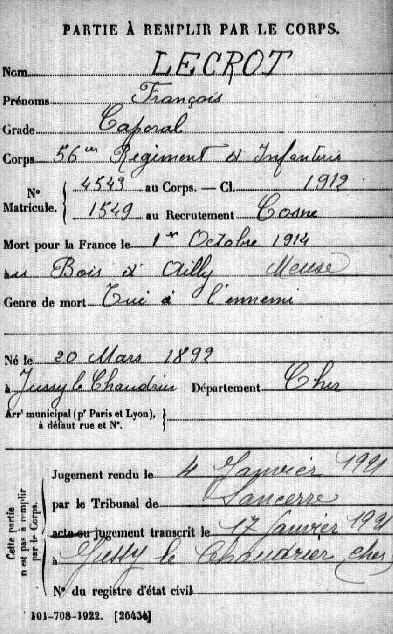 PARTIE À REMPLIR PAR LE CORPS.
Nom LECROT
Prénoms François
Grade Caporal
Corps 56eme Régiment d'Infanterie
N° Matricule. { 4549 au Corps. — Cl. 1912
1549 au Recrutement Cosne
Mort pour la France le 1er Octobre 1914
au Bois d'Ailly Meuse
Genre de mort Tué à l'ennemi
Né le 20 Mars 1892
à Jussy le Chaudrier Département Cher
Arrt municipal (pr Paris et Lyon), à défaut rue et N°.
Cette partie n'est pas à remplir par le Corps.
Jugement rendu le 4 Janvier 1921
par le Tribunal de Sancerre
acte ou jugement transcrit le 17 Janvier 1921
à Jussy le Chaudrier Cher
N° du registre d'état civil
101-708-1922. [26434]